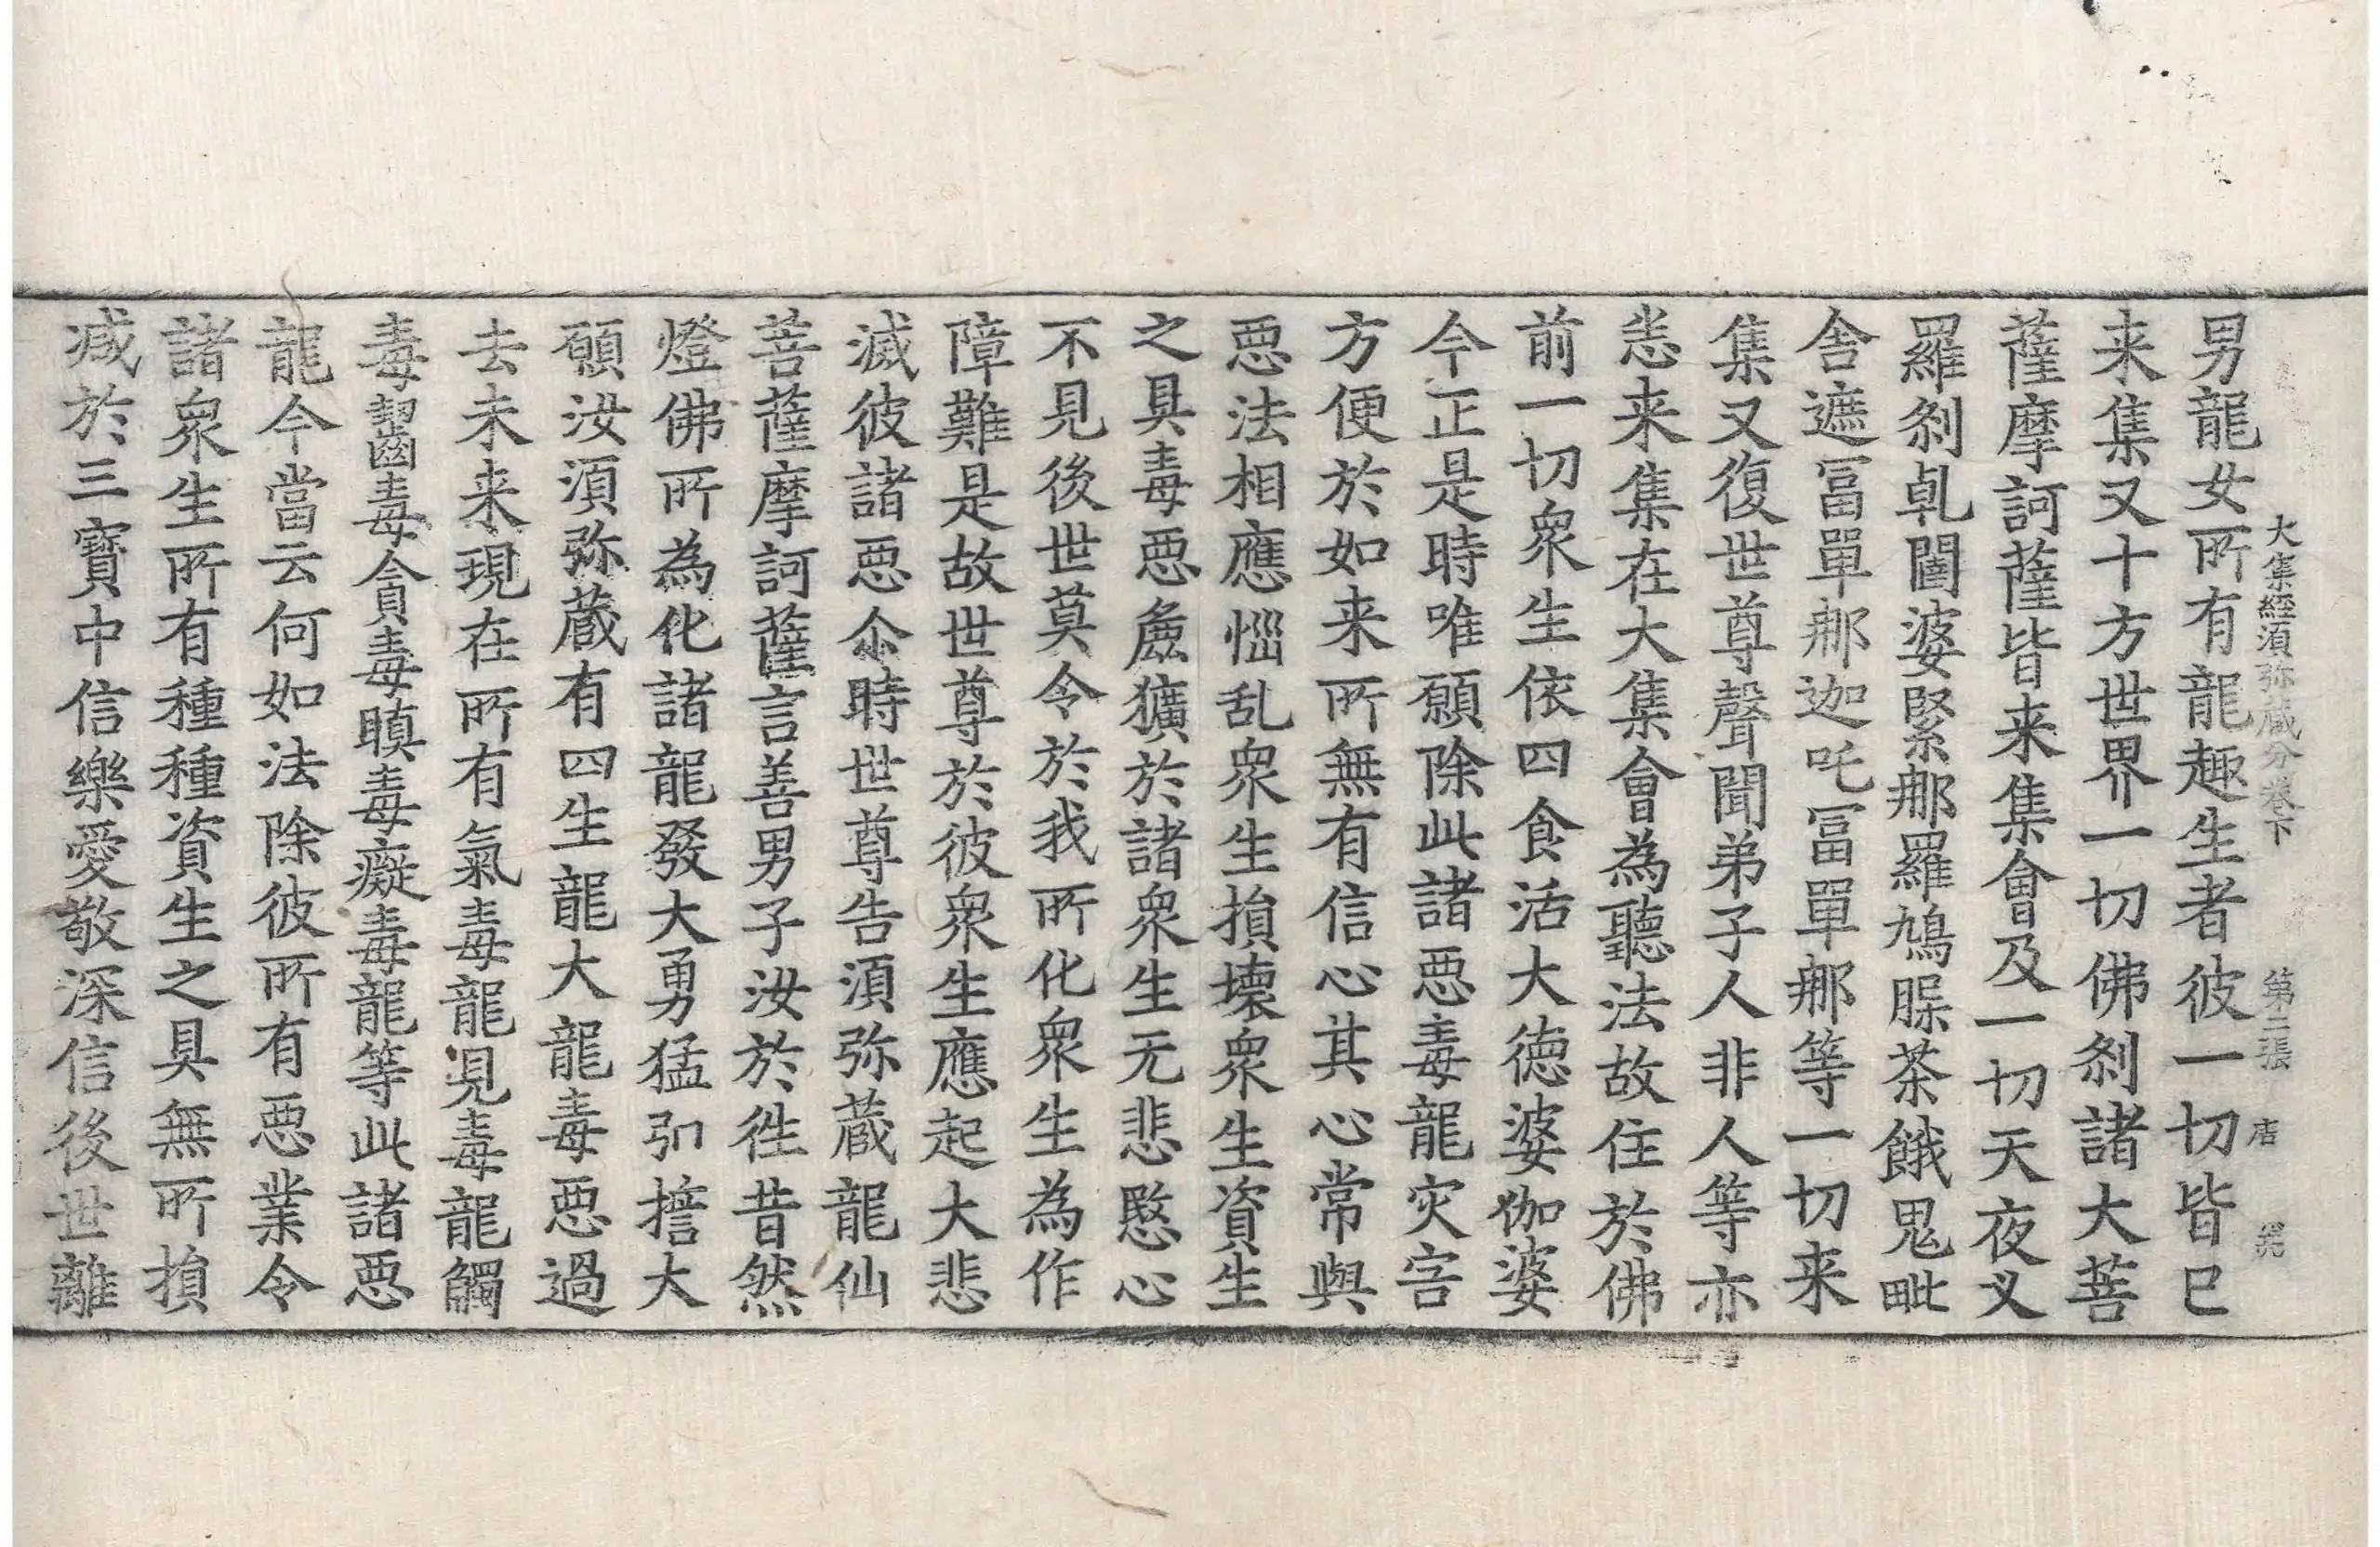 大集經湏弥蔵分卷下 第二張 唐
男龍女所有龍趣生者彼一切皆已
来集又十方世界一切佛剎諸大菩
薩摩訶薩皆来集會及一切天夜叉
羅剎乹闥婆緊那羅鳩腺茶餓鬼毗
舎遮冨單那迦吒冨單那等一切来
集又復世尊聲聞弟子人非人等亦
恙来集在大集會為聽法故住於佛
前一切衆生依四食活大德婆伽婆
今正是時唯願除此諸惡毒龍灾害
方便於如来所無有信心其心常與
惡法相應惱乱衆生損壞衆生資生
之具毒惡麁獷於諸衆生无悲愍心
不見後世莫令於我所化衆生為作
障難是故世尊於彼衆生應起大悲
滅彼諸惡尒時世尊告湏弥蔵龍仙
菩薩摩訶薩言善男子汝於徃昔然
燈佛所為化諸龍發大勇猛引擔大
願汝湏弥蔵有四生龍大龍毒惡過
去未来現在所有氣毒龍見毒龍觸
毒齧毒貪毒瞋毒癡毒龍等此諸惡
龍今當云何如法除彼所有惡業令
諸衆生所有種種資生之具無所損
减於三寶中信樂愛敬深信後世離